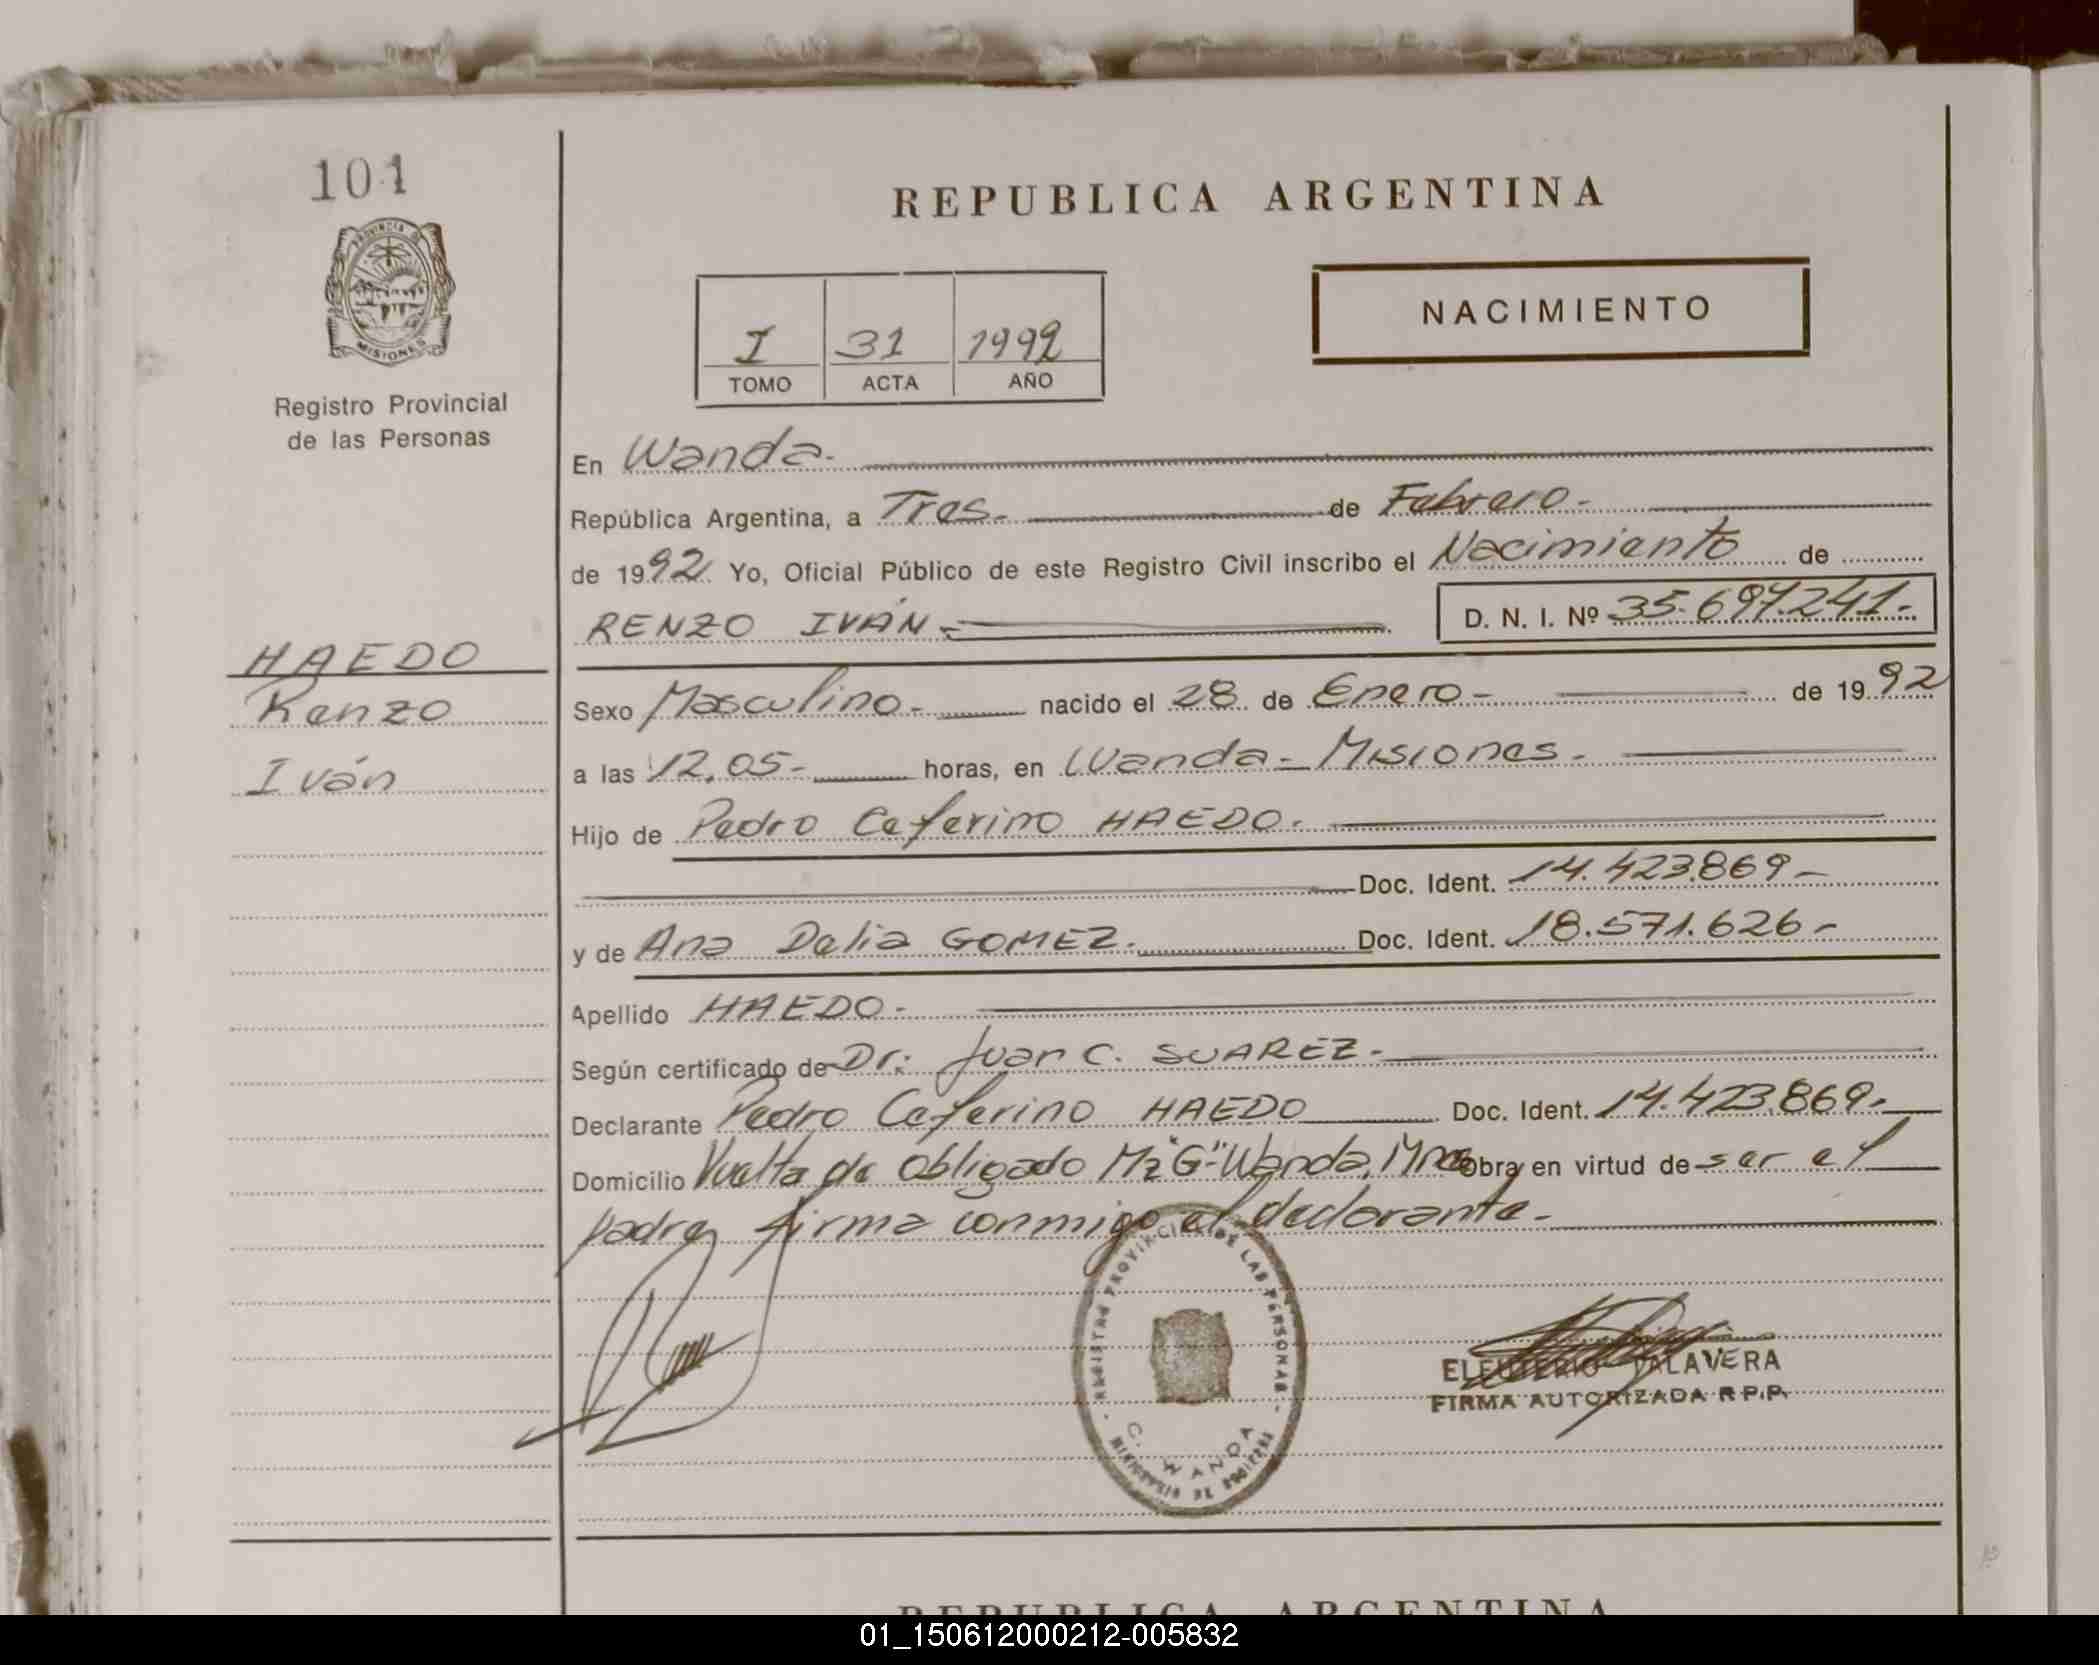 101
PROVINCIA DE
MISIONES
Registro Provincial
de las Personas
HAEDO
Renzo
Iván
REPUBLICA ARGENTINA
I 31 1992
TOMO ACTA AÑO
NACIMIENTO
En Wanda.
República Argentina, a Tres. de Febrero.
de 1992 Yo, Oficial Público de este Registro Civil inscribo el Nacimiento de
RENZO IVÁN D. N. I. Nº 35.697.241.-
Sexo Masculino.- nacido el 28 de Enero.- de 1992
a las 12,05.- horas, en Wanda - Misiones.
Hijo de Pedro Ceferino HAEDO.
Doc. Ident. 14.423.869.-
y de Ana Delia GOMEZ. Doc. Ident. 18.571.626.-
Apellido HAEDO.
Según certificado de Dr: Juan C. SUAREZ.-
Declarante Pedro Ceferino HAEDO Doc. Ident. 14.423.869.-
Domicilio Vuelta de Obligado Mz "G"-Wanda, Mnes obra en virtud de ser el
padre, firma conmigo el declarante.-
REGISTRO PROVINCIAL DE LAS PERSONAS
WANDA
ELEUTERIO TALAVERA
FIRMA AUTORIZADA R.P.P.
REPUBLICA ARGENTINA
01_150612000212-005832